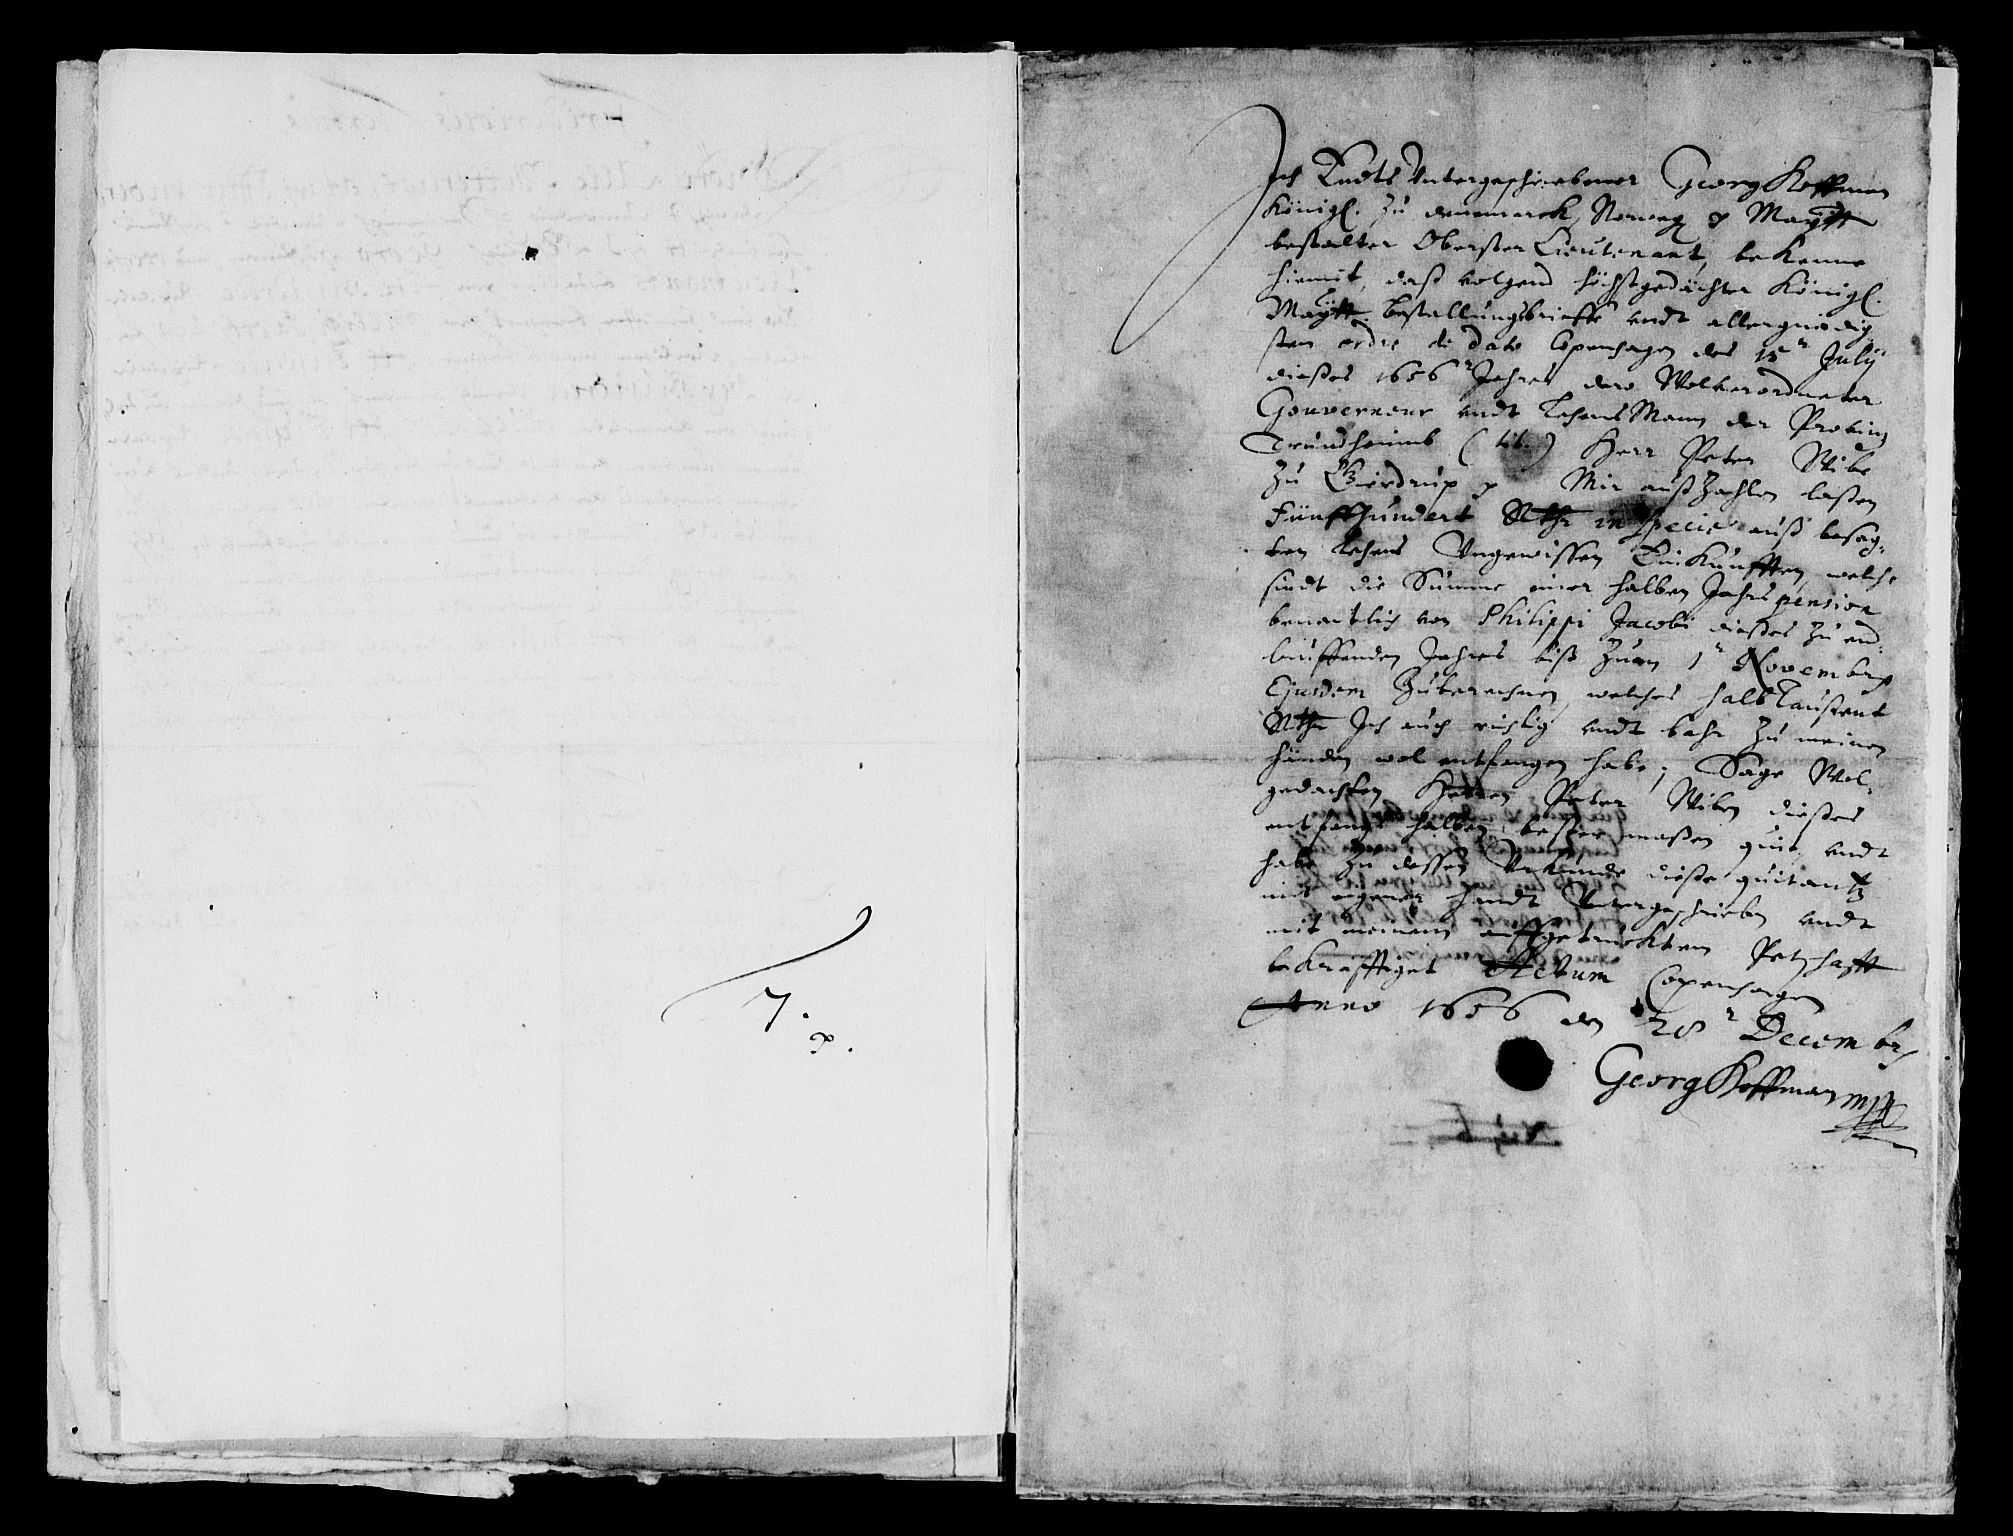 7.
Ich Endts Untergeschriebener Georg Koffman
Königl. Zu dennemarck, Norweg p Maytt
bestalter Oberster Lieutenant, bekenne
hiemit, daß volgend höchstgedachter Königl.
Maytt. Bestallungsbrieffe undt allergnedig
sten ordre de dato Copenhagen des 15 July
dießes 1656 Jahres, der Wolverordneter
Gouverneur undt Lehens Mann der Provintz
Trundheimb (tit.) Herr Peter Wibe
Zu Gierdrup p Mir außzahlen laßen
Fünffhundert Rthr in specie auß besag-
ten Lehens Ungewissen Einkünfften, welche
sindt die Summe einer halben Jahrs pension
benentlich von Philippi Jacobi dießes Zu end
lauffenden Jahres biß Zum 1 Novembr
Ejusdem Zuberechnen, welches halb Taußent
Rthr Ich auch richtig undt bahr Zu meinen
händen wol entfangen habe; Sage Wol-
gedachten Herren Peter Wiben dießes
entfangs halben bester maßen quit, undt
habe Zu dessen Urkunde dieße quitantz
mit eigener handt Untergeschrieben undt
mit meinem auffgetrucktem Petschafft
bekräfftiget Actum Copenhagen
Anno 1656 den 28 Decembr
Georg Koffman mpp